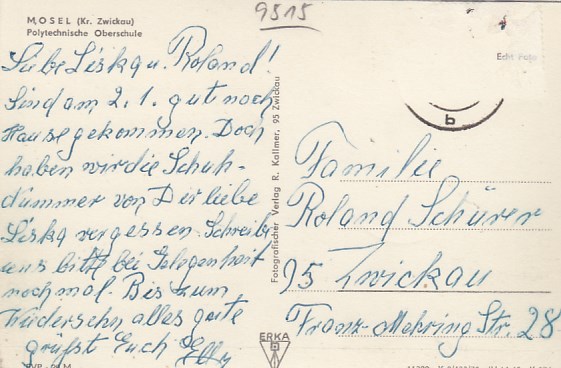 9515
MOSEL (Kr. Zwickau)
Polytechnische Oberschule
Echt Foto
b
Liebe Liska u. Roland!
Sind am 2.1. gut nach
Hause gekommen. Doch
haben wir die Schuh-
Nummer von Dir liebe
Liska vergessen. Schreibt
uns bitte bei Gelegenheit
noch mal. Bis zum
Wiedersehn alles gute
grüßt Euch
Fotografischer Verlag R. Kallmer, 95 Zwickau
Familie
Roland Schürer
95 Zwickau
Franz-Mehring Str. 28
ERKA